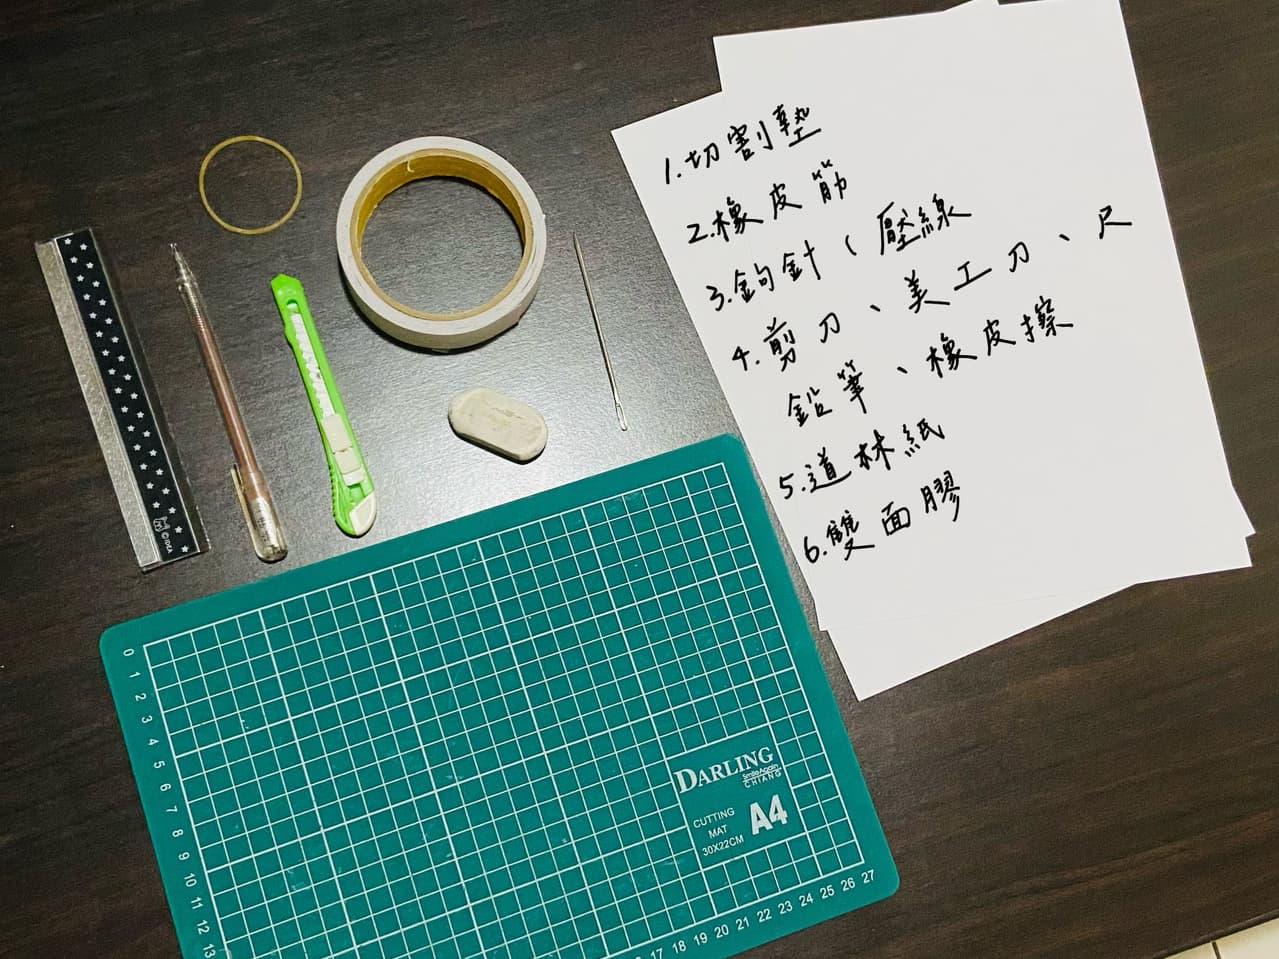 1.切割墊
2.橡皮筋
3.鉤針、壓線
4.剪刀、美工刀、尺
鉛筆、橡皮擦
5.道林紙
6.雙面膠
©IDEA
0
1
2
3
4
5
6
7
8
9
10
11
12
13
DARLING
Smile Again
CHIANG
CUTTING
MAT
30X22CM
A4
16 17 18 19 20 21 22 23 24 25 26 27